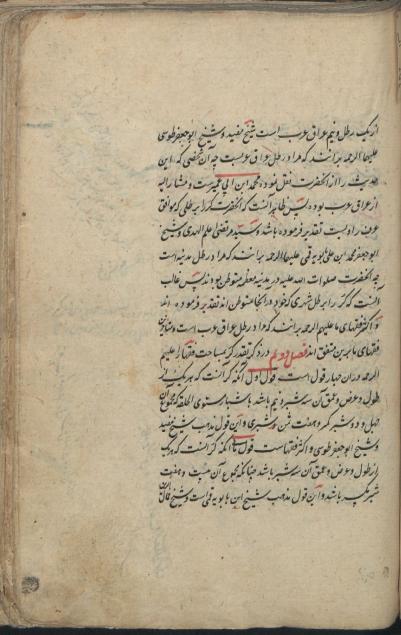 از یک رطل و نیم عراق عرب است شیخ مفید و شیخ ابو جعفر طوسی
علیهما الرحمه برانند که مراد رطل عراق عربست چه آن شخصی که این
حدیث را از انحضرت نقل نموده محمد ابن ابی عمیرست و مشار الیه
از عراق عرب بوده پس ظاهر آنست که انحضرت کر را برطلی که موافق
عرف راویست تقدیر فرموده باشد و سید مرتضی علم الهدی و شیخ
ابو جعفر محمد ابن علی بابویه قمی علیهما الرحمه برانند که مراد رطل مدنیه است
چه انحضرت صلوات الله علیه در مدینه معظمه متوطن بوده اند پس غالب
آنست که کر را برطل شهری که خود در انجا متوطن اند تقدیر فرموده اند
و اکثر فقهای ما علیهم الرحمه برانند که مراد رطل عراق عرب است و متاخرین
فقهای ما برین متفق اند فصل دوم در ذکر تقدیر کر بمساحت فقها را علیهم
الرحمه در آن چهار قول است قول اول آنکه کر آنست که هر یک از
طول و عرض و عمق آن سه شبر و نیم باشد باشبار مستوی الخلقه که مجموع آن
چهل و دو شبر کم و هفت ثمن شبری و این قول مذهب شیخ مفید
و شیخ ابو جعفر طوسی و اکثر فقهاست قول آنکه کر آنست که هر یک
از طول و عرض و عمق آن سه شبر باشد چنانکه مجموع آن بیست و هفت
شبر مکسر باشد و این قول مذهب شیخ ابن بابویه قمی است و شیخ